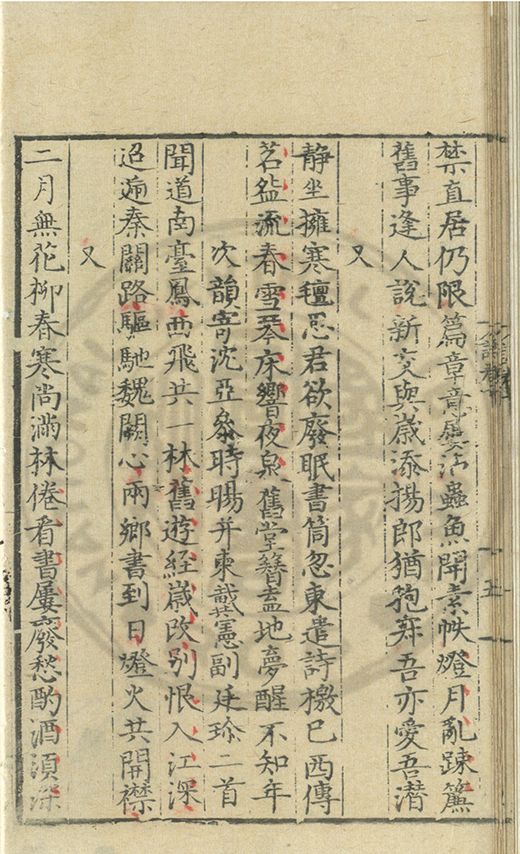 禁直居仍限篇章屢沾蟲魚開素帙燈月亂踈簾
舊事逢人說新交與歲添揚郎猶弃吾亦愛吾潛
又
静坐擁寒氊思君欲廢眠書筒忽東遣詩檄已西傳
茗盌流春雪琴床響夜泉舊堂簪盍地夢醒不知年
次韻寄沈亞參時暘并柬戴憲副廷珍二首
聞道南臺鳳西飛共一林舊遊經歲改別恨入江深
迢遞秦關路驅馳魏闕心兩鄉書到日燈火共開襟
又
二月無花柳春寒尚滿林倦看書屢廢愁酌酒須深
五